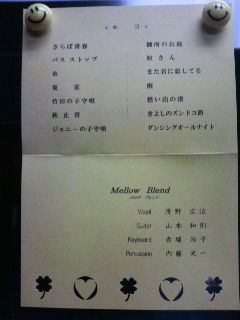 <曲 目>
さらば青春
バス ストップ
糸
東 京
竹田の子守唄
終止符
ジョニーの子守唄
御所のお庭
奴さん
また君に恋してる
雨
想い出の渚
きよしのズンドコ節
ダンシングオールナイト
Mellow Blend
メロウ ブレンド
Vocal 浅野 広治
Guitar 山本 和則
Keyboard 赤堀 玲子
Percussion 内藤 光一